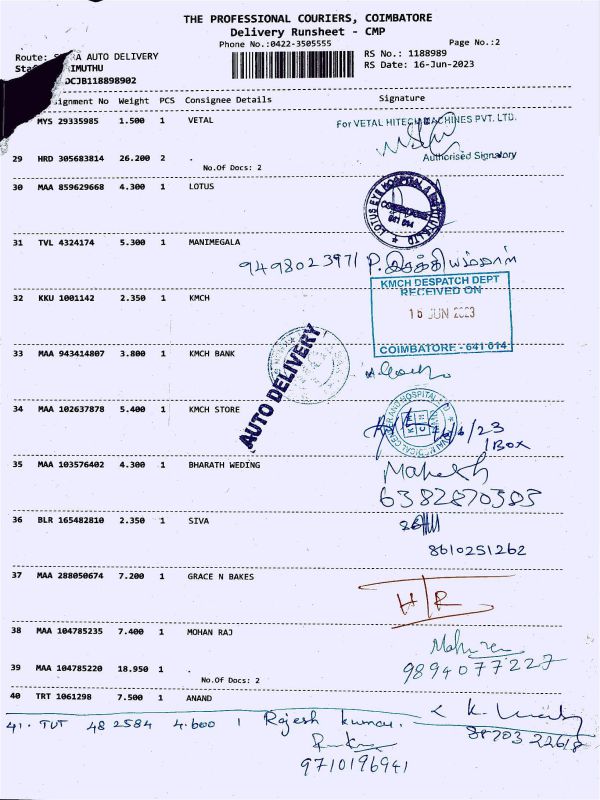 THE PROFESSIONAL COURIERS, COIMBATORE
Delivery Runsheet - CMP
Phone No.:0422-3505555 Page No.:2
Route: AUTO DELIVERY RS No.: 1188989
RS Date: 16-Jun-2023
DCJB118898902
signment No Weight PCS Consignee Details Signature
MYS 29335985 1.500 1 VETAL
For VETAL HITECH MACHINES PVT. LTD.
Authorised Signatory
29 HRD 305683814 26.200 2 .
No.Of Docs: 2
30 MAA 859629668 4.300 1 LOTUS
LOTUS EYE HOSPITAL & INSTITUTE LTD
COIMBATORE
641 014
31 TVL 4324174 5.300 1 MANIMEGALA
9498023971 P.
KMCH DESPATCH DEPT
RECEIVED ON
16 JUN 2023
COIMBATORE - 641 014
32 KKU 1001142 2.350 1 KMCH
33 MAA 943414807 3.800 1 KMCH BANK
AUTO DELIVERY
34 MAA 102637878 5.400 1 KMCH STORE
KMCH
/6/23
1 BOX
35 MAA 103576402 4.300 1 BHARATH WEDING
Mahesh
6382870383
36 BLR 165482810 2.350 1 SIVA
8610251262
37 MAA 288050674 7.200 1 GRACE N BAKES
H/R
38 MAA 104785235 7.400 1 MOHAN RAJ
9894077227
39 MAA 104785220 18.950 1 .
No.Of Docs: 2
40 TRT 1061298 7.500 1 ANAND
88703 22618
41. TUT 48 2584 4.600 1 Rajesh kumar.
9710196941